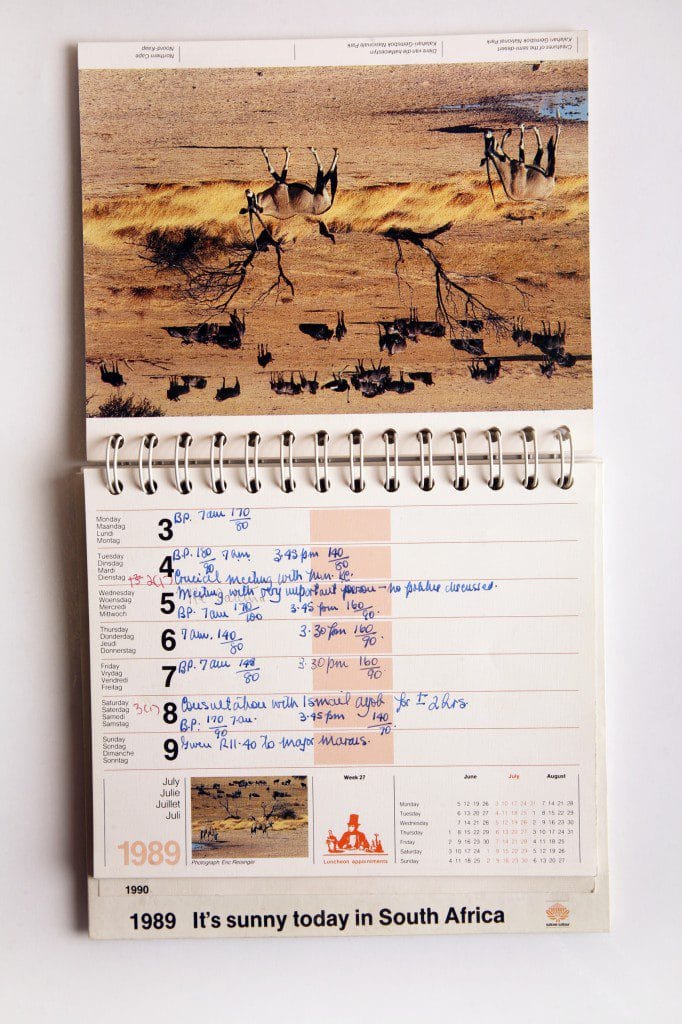 Northern Cape
Noord-Kaap
Diere van die halfwoestyn
Kalahari-Gemsbok Nasionale Park
Creatures of the semi-desert
Kalahari Gemsbok National Park
Monday
Maandag
Lundi
Montag
3
BP. 7am 170/80
Tuesday
Dinsdag
Mardi
Dienstag
4
BP. 180/90 7am 3.45pm 140/80
Crucial meeting with
Wednesday
Woensdag
Mercredi
Mittwoch
5
Meeting with very important person - no politics discussed.
BP. 7am 170/100 3.45pm 160/90.
Thursday
Donderdag
Jeudi
Donnerstag
6
7am. 140/80 3.30pm 160/90.
Friday
Vrydag
Vendredi
Freitag
7
BP. 7am 80 3.30pm 160/90.
Saturday
Saterdag
Samedi
Samstag
8
Consultation with Ismail Ayob for ± 2 hrs
B.P. 170/90 7am. 3.45pm 140/70.
Sunday
Sondag
Dimanche
Sonntag
9
Given R11.40 to major Marais.
July
Julie
Juillet
Juli
1989
Photograph: Eric Reisinger
Week 27
Luncheon appointments
June July August
Monday 5 12 19 26 3 10 17 24 31 7 14 21 28
Tuesday 6 13 20 27 4 11 18 25 1 8 15 22 29
Wednesday 7 14 21 28 5 12 19 26 2 9 16 23 30
Thursday 1 8 15 22 29 6 13 20 27 3 10 17 24 31
Friday 2 9 16 23 30 7 14 21 28 4 11 18 25
Saturday 3 10 17 24 1 8 15 22 29 5 12 19 26
Sunday 4 11 18 25 2 9 16 23 30 6 13 20 27
1990
1989 It's sunny today in South Africa